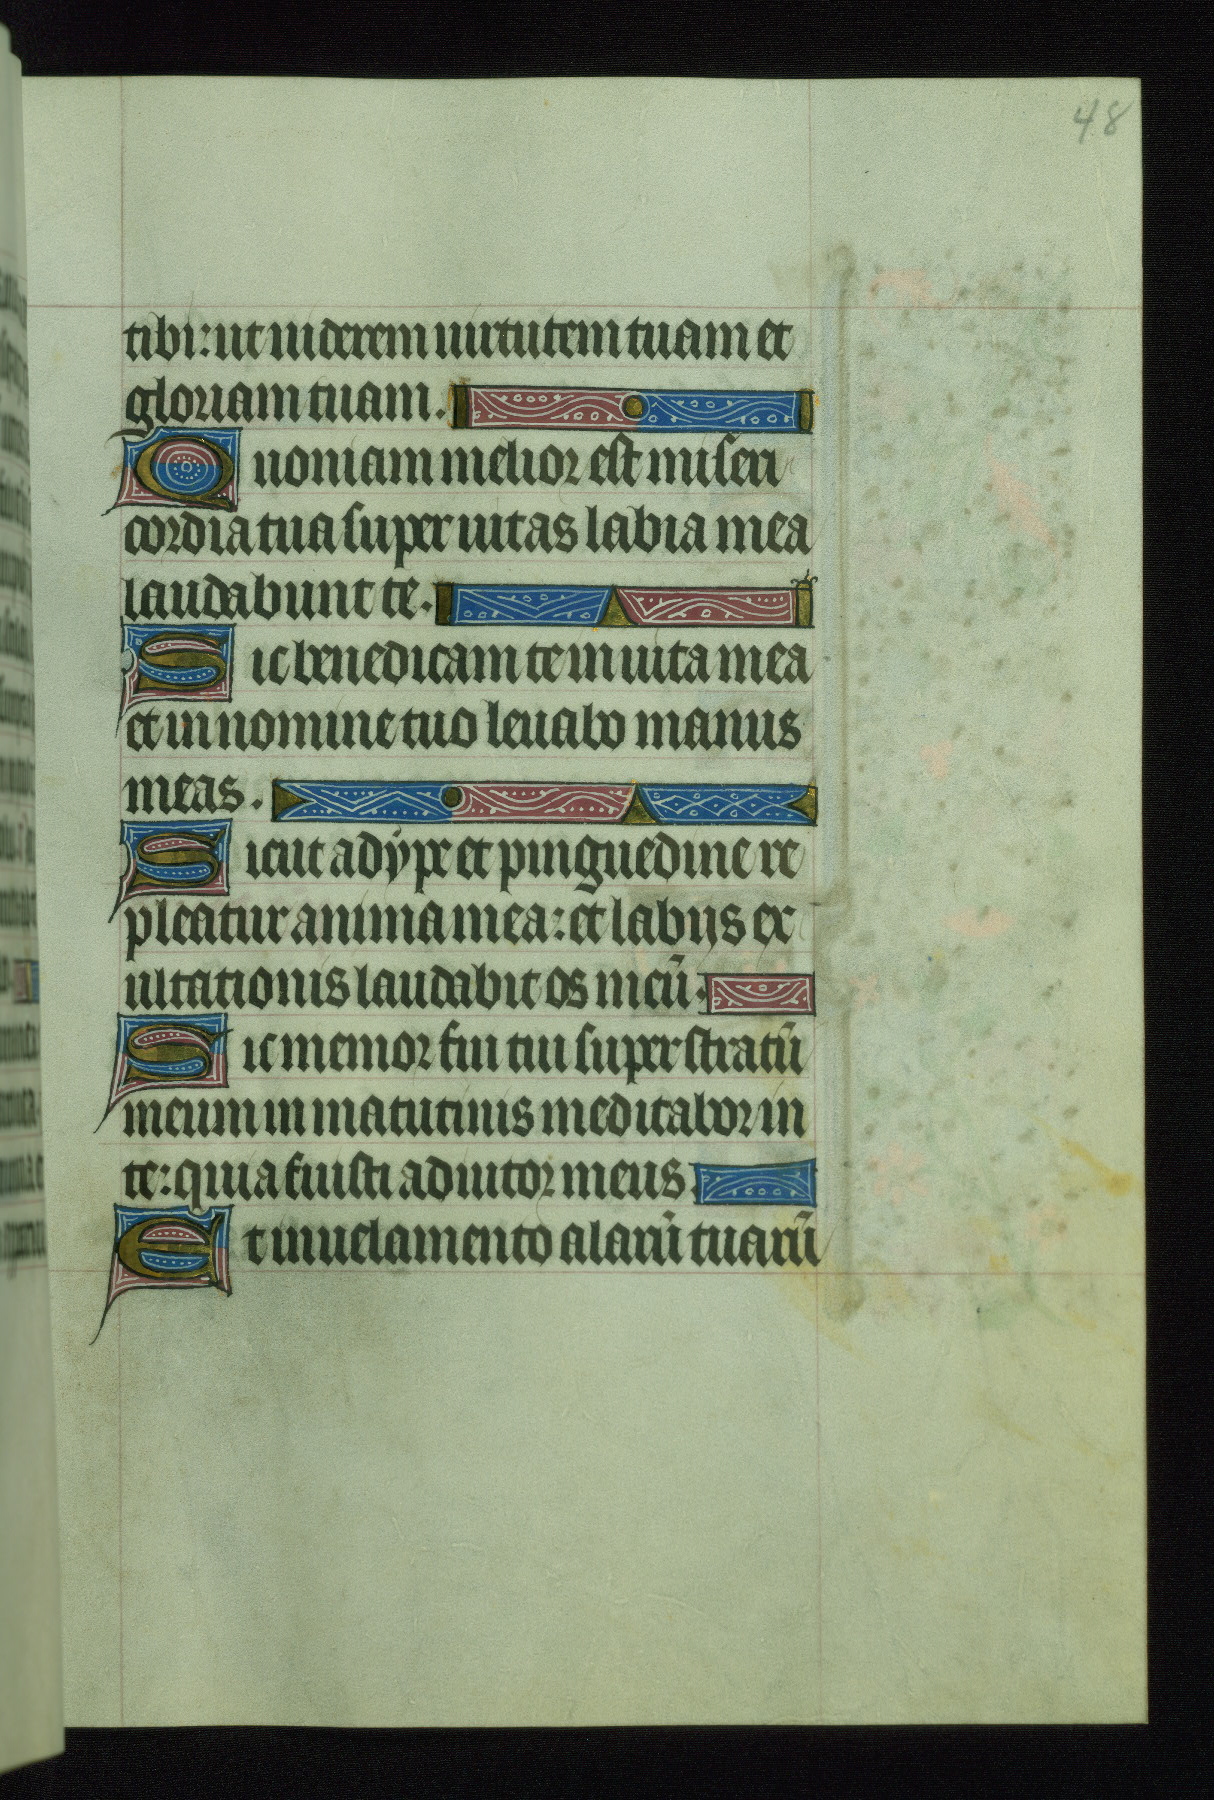 48
tibi: ut uiderem uirtutem tuam et
gloriam tuam.
Quoniam melior est miseri
cordia tua super uitas labia mea
laudabunt te.
Sic benedicam te in uita mea
et in nomine tuo leuabo manus
meas.
Sicut adype et pinguedine re
pleatur anima mea: et labijs ex
ultationis laudabit os meū.
Sic memor fui tui super stratū
meum in matutinis meditabor in
te: quia fuisti adiutor meus.
Et in uelamento alarū tuarū